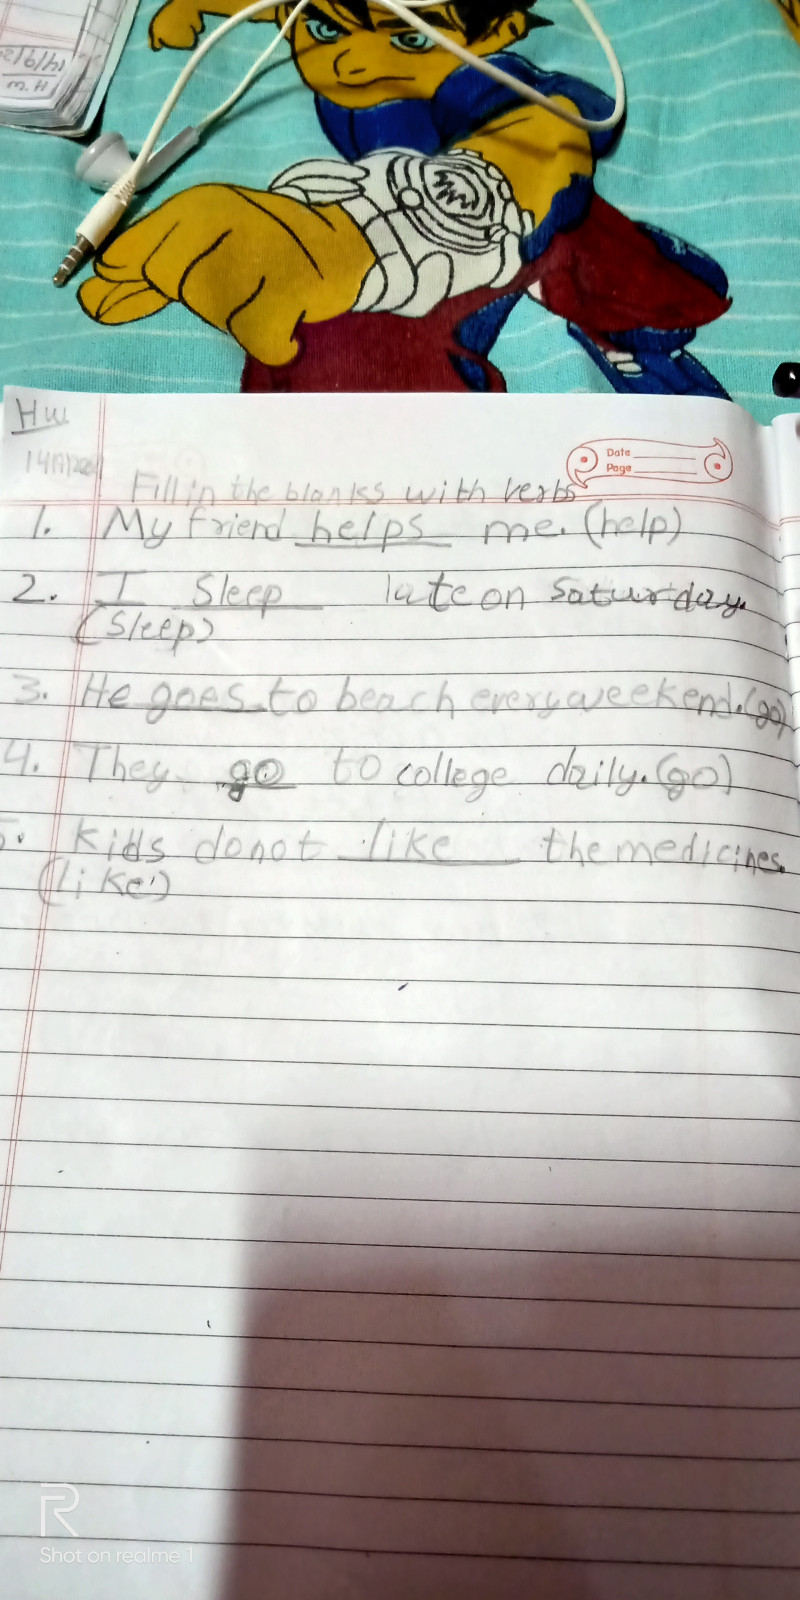 H.W
Hw
Date
Page
Fill in the blanks with verbs
1. My friend helps me. (help)
2. I Sleep late on Saturday.
(Sleep)
3. He goes to beach every weekend. (go)
4. They go to college daily. (go)
5. Kids donot like the medicines.
(like)
R
Shot on realme 1